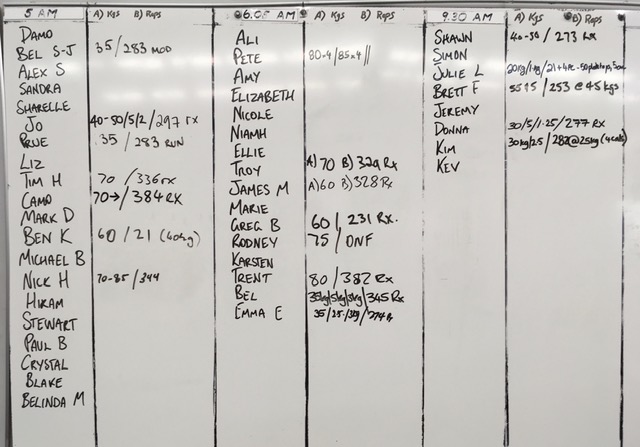 5 AM A) Kgs B) Reps
Damo
Bel S-J 35/283 MOD
Alex S
Sandra
Sharelle
Jo 40-50/5/2/297 rx
Prue 35 / 283 RUN
Liz
Tim H 70 / 336 rx
Camo 70→/384 RX
Mark D
Ben K 60 / 21 (40kg)
Michael B
Nick H 70-85/344
Hiram
Stewart
Paul B
Crystal
Blake
Belinda M
6.05 AM A) Kgs B) Reps
Ali
Pete 80×4/85×4//
Amy
Elizabeth
Nicole
Niamh
Ellie
Troy A) 70 B) 329 Rx
James M A) 60 B) 328 Rx
Marie
Greg B 60 / 231 RX.
Rodney 75 / DNF
Karsten
Trent 80 / 382 Rx
Bel 35kg/5kg/3kg/345 Rx
Emma E 35/25/
9.30 AM A) Kgs B) Reps
Shawn 40-50 / 273 rx
Simon
Julie L
Brett F / 253 @ 45 kgs
Jeremy
Donna 30/5/1.25/277 RX
Kim 30kg/25/282@25kg (4cals)
Kev